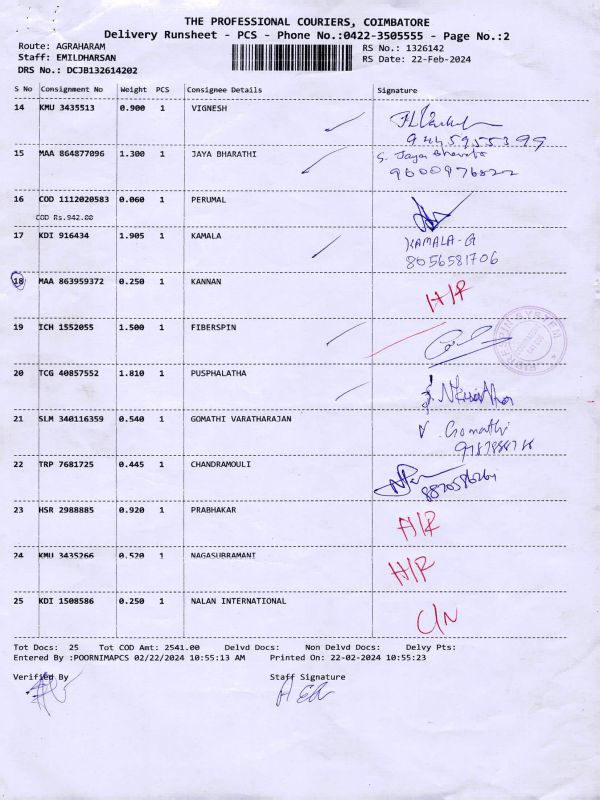 THE PROFESSIONAL COURIERS, COIMBATORE
Delivery Runsheet - PCS - Phone No.:0422-3505555 - Page No.:2
Route: AGRAHARAM RS No.: 1326142
Staff: EMILDHARSAN RS Date: 22-Feb-2024
DRS No.: DCJB132614202
S No Consignment No Weight PCS Consignee Details Signature
14 KMU 3435513 0.900 1 VIGNESH
9445955399
15 MAA 864877096 1.300 1 JAYA BHARATHI S. Jaya Bharati
9600976822
16 COD 1112020583 0.060 1 PERUMAL
COD Rs.942.00
17 KDI 916434 1.905 1 KAMALA KAMALA-G
8056581706
18 MAA 863959372 0.250 1 KANNAN H/R
19 ICH 1552055 1.500 1 FIBERSPIN
20 TCG 40857552 1.810 1 PUSPHALATHA
21 SLM 340116359 0.540 1 GOMATHI VARATHARAJAN V. Gomathi
22 TRP 7681725 0.445 1 CHANDRAMOULI
23 HSR 2988885 0.920 1 PRABHAKAR H/R
24 KMU 3435266 0.520 1 NAGASUBRAMANI H/R
25 KDI 1508586 0.250 1 NALAN INTERNATIONAL C/N
Tot Docs: 25 Tot COD Amt: 2541.00 Delvd Docs: Non Delvd Docs: Delvy Pts:
Entered By :POORNIMAPCS 02/22/2024 10:55:13 AM Printed On: 22-02-2024 10:55:23
Verified By Staff Signature